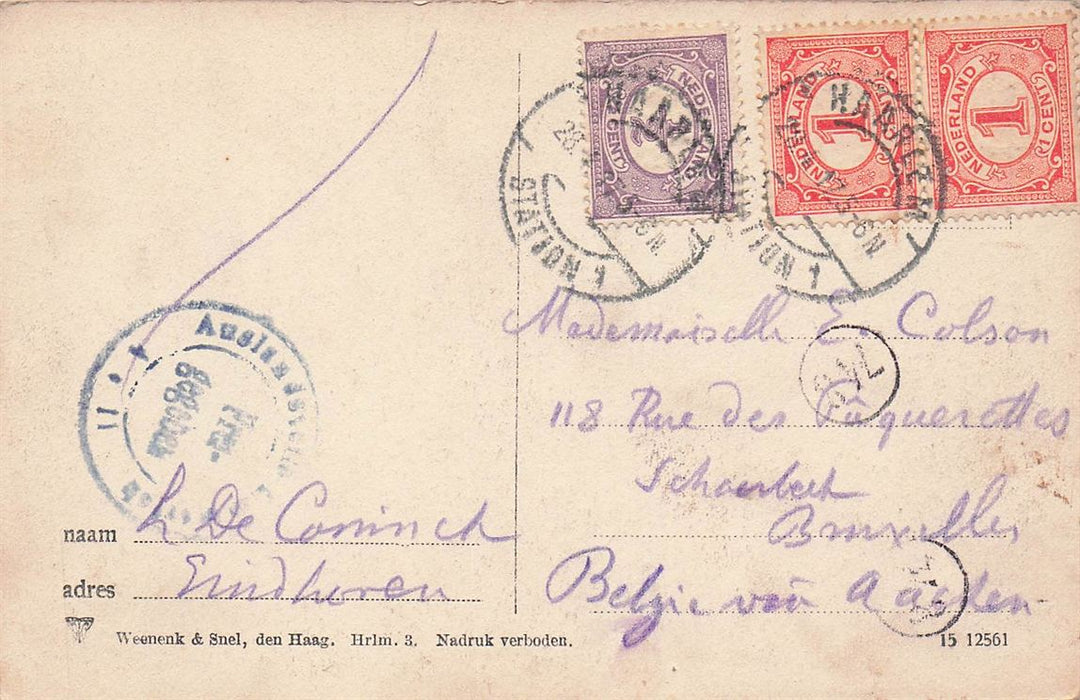 NEDERLAND
CENT
NEDERLAND
1
NEDERLAND
1
1 CENT.
HAARLEM
STATION 1
HAARLEM
5-6N
STATION 1
Auslandsstelle
Frei-
gegeben
Mademoiselle E. Colson
118 Rue des Pâquerettes
Schaerbeek
Bruxelles
Belgie van Aachen
naam L De Coninck
adres Eindhoven
Weenenk & Snel, den Haag. Hrlm. 3. Nadruk verboden.
15 12561